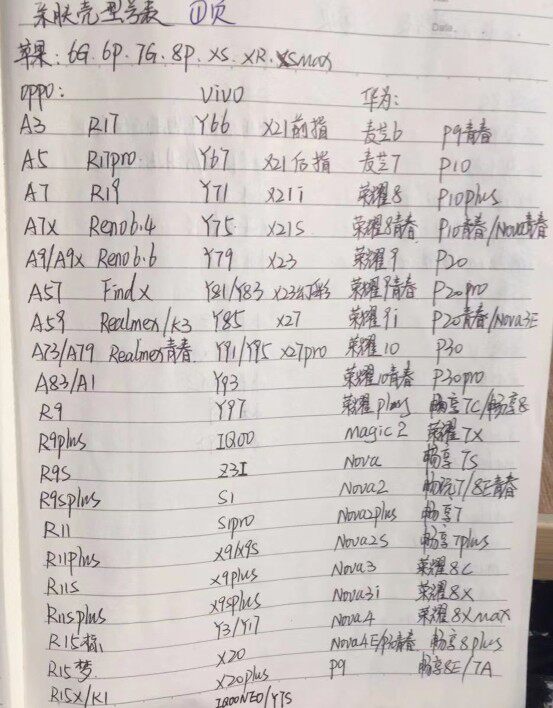 亲肤壳型号表 ①页
苹果: 6G. 6P. 7G. 8P. XS. XR. XSmax
oppo: vivo 华为:
A3 R17 Y66 X21前指 麦芒6 P9青春
A5 R17pro Y67 X21后指 麦芒7 P10
A7 R19 Y71 X21i 荣耀8 P10plus
A7x Reno6.4 Y75 X21S 荣耀8青春 P10青春/Nova青春
A9/A9x Reno6.6 Y79 X23 荣耀9 P20
A57 Findx Y81/Y83 X23幻彩 荣耀9青春 P20pro
A59 Realmex/K3 Y85 X27 荣耀9i P20青春/Nova3E
A73/A79 Realmex青春 Y91/Y95 X27pro 荣耀10 P30
A83/A1 Y93 荣耀10青春 P30pro
R9 Y97 荣耀play 畅享7C/畅享8
R9plus IQOO magic2 荣耀7X
R9S Z3I Nova 畅享7S
R9Splus S1 Nova2 畅玩7/8E青春
R11 S1pro Nova2plus 畅享7
R11plus X9/X9S Nova2S 畅享7plus
R11S X9plus Nova3 荣耀8C
R11Splus X9Splus Nova3i 荣耀8X
R15标 Y3/Y17 Nova4 荣耀8Xmax
R15梦 X20 Nova4E/P30青春 畅享8plus
R15X/K1 X20plus P9 畅享8E/7A
IQOONEO/Y7S